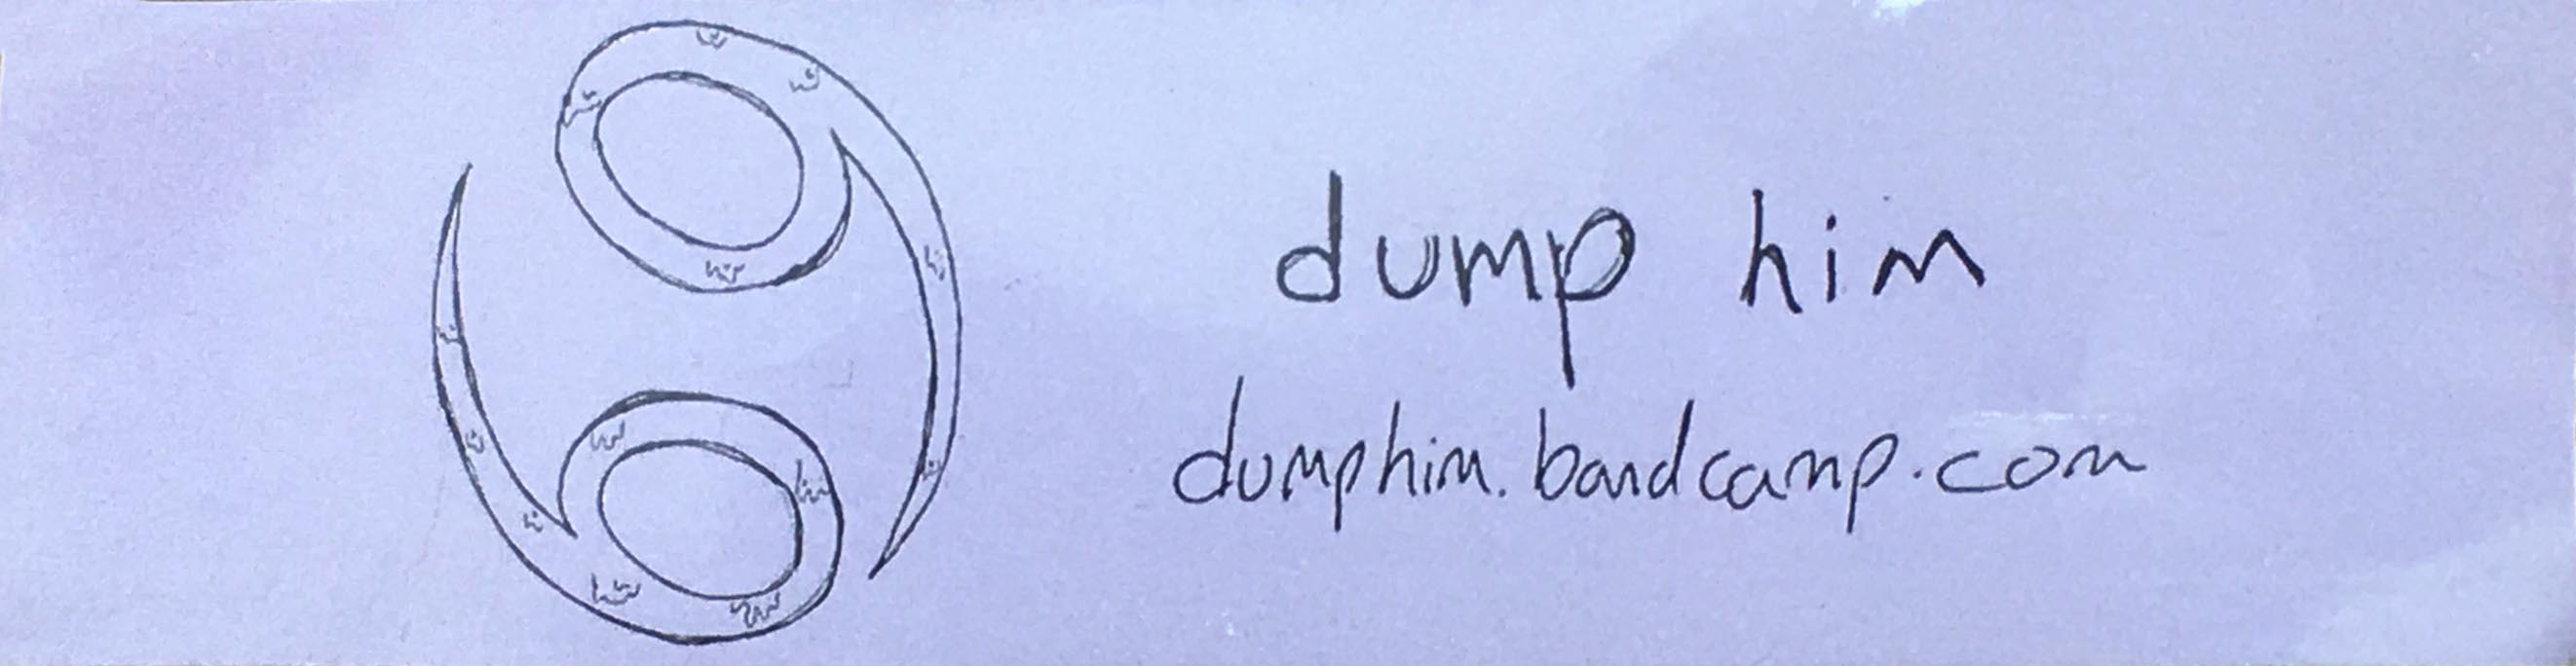 dump him
dumphim.bandcamp.com